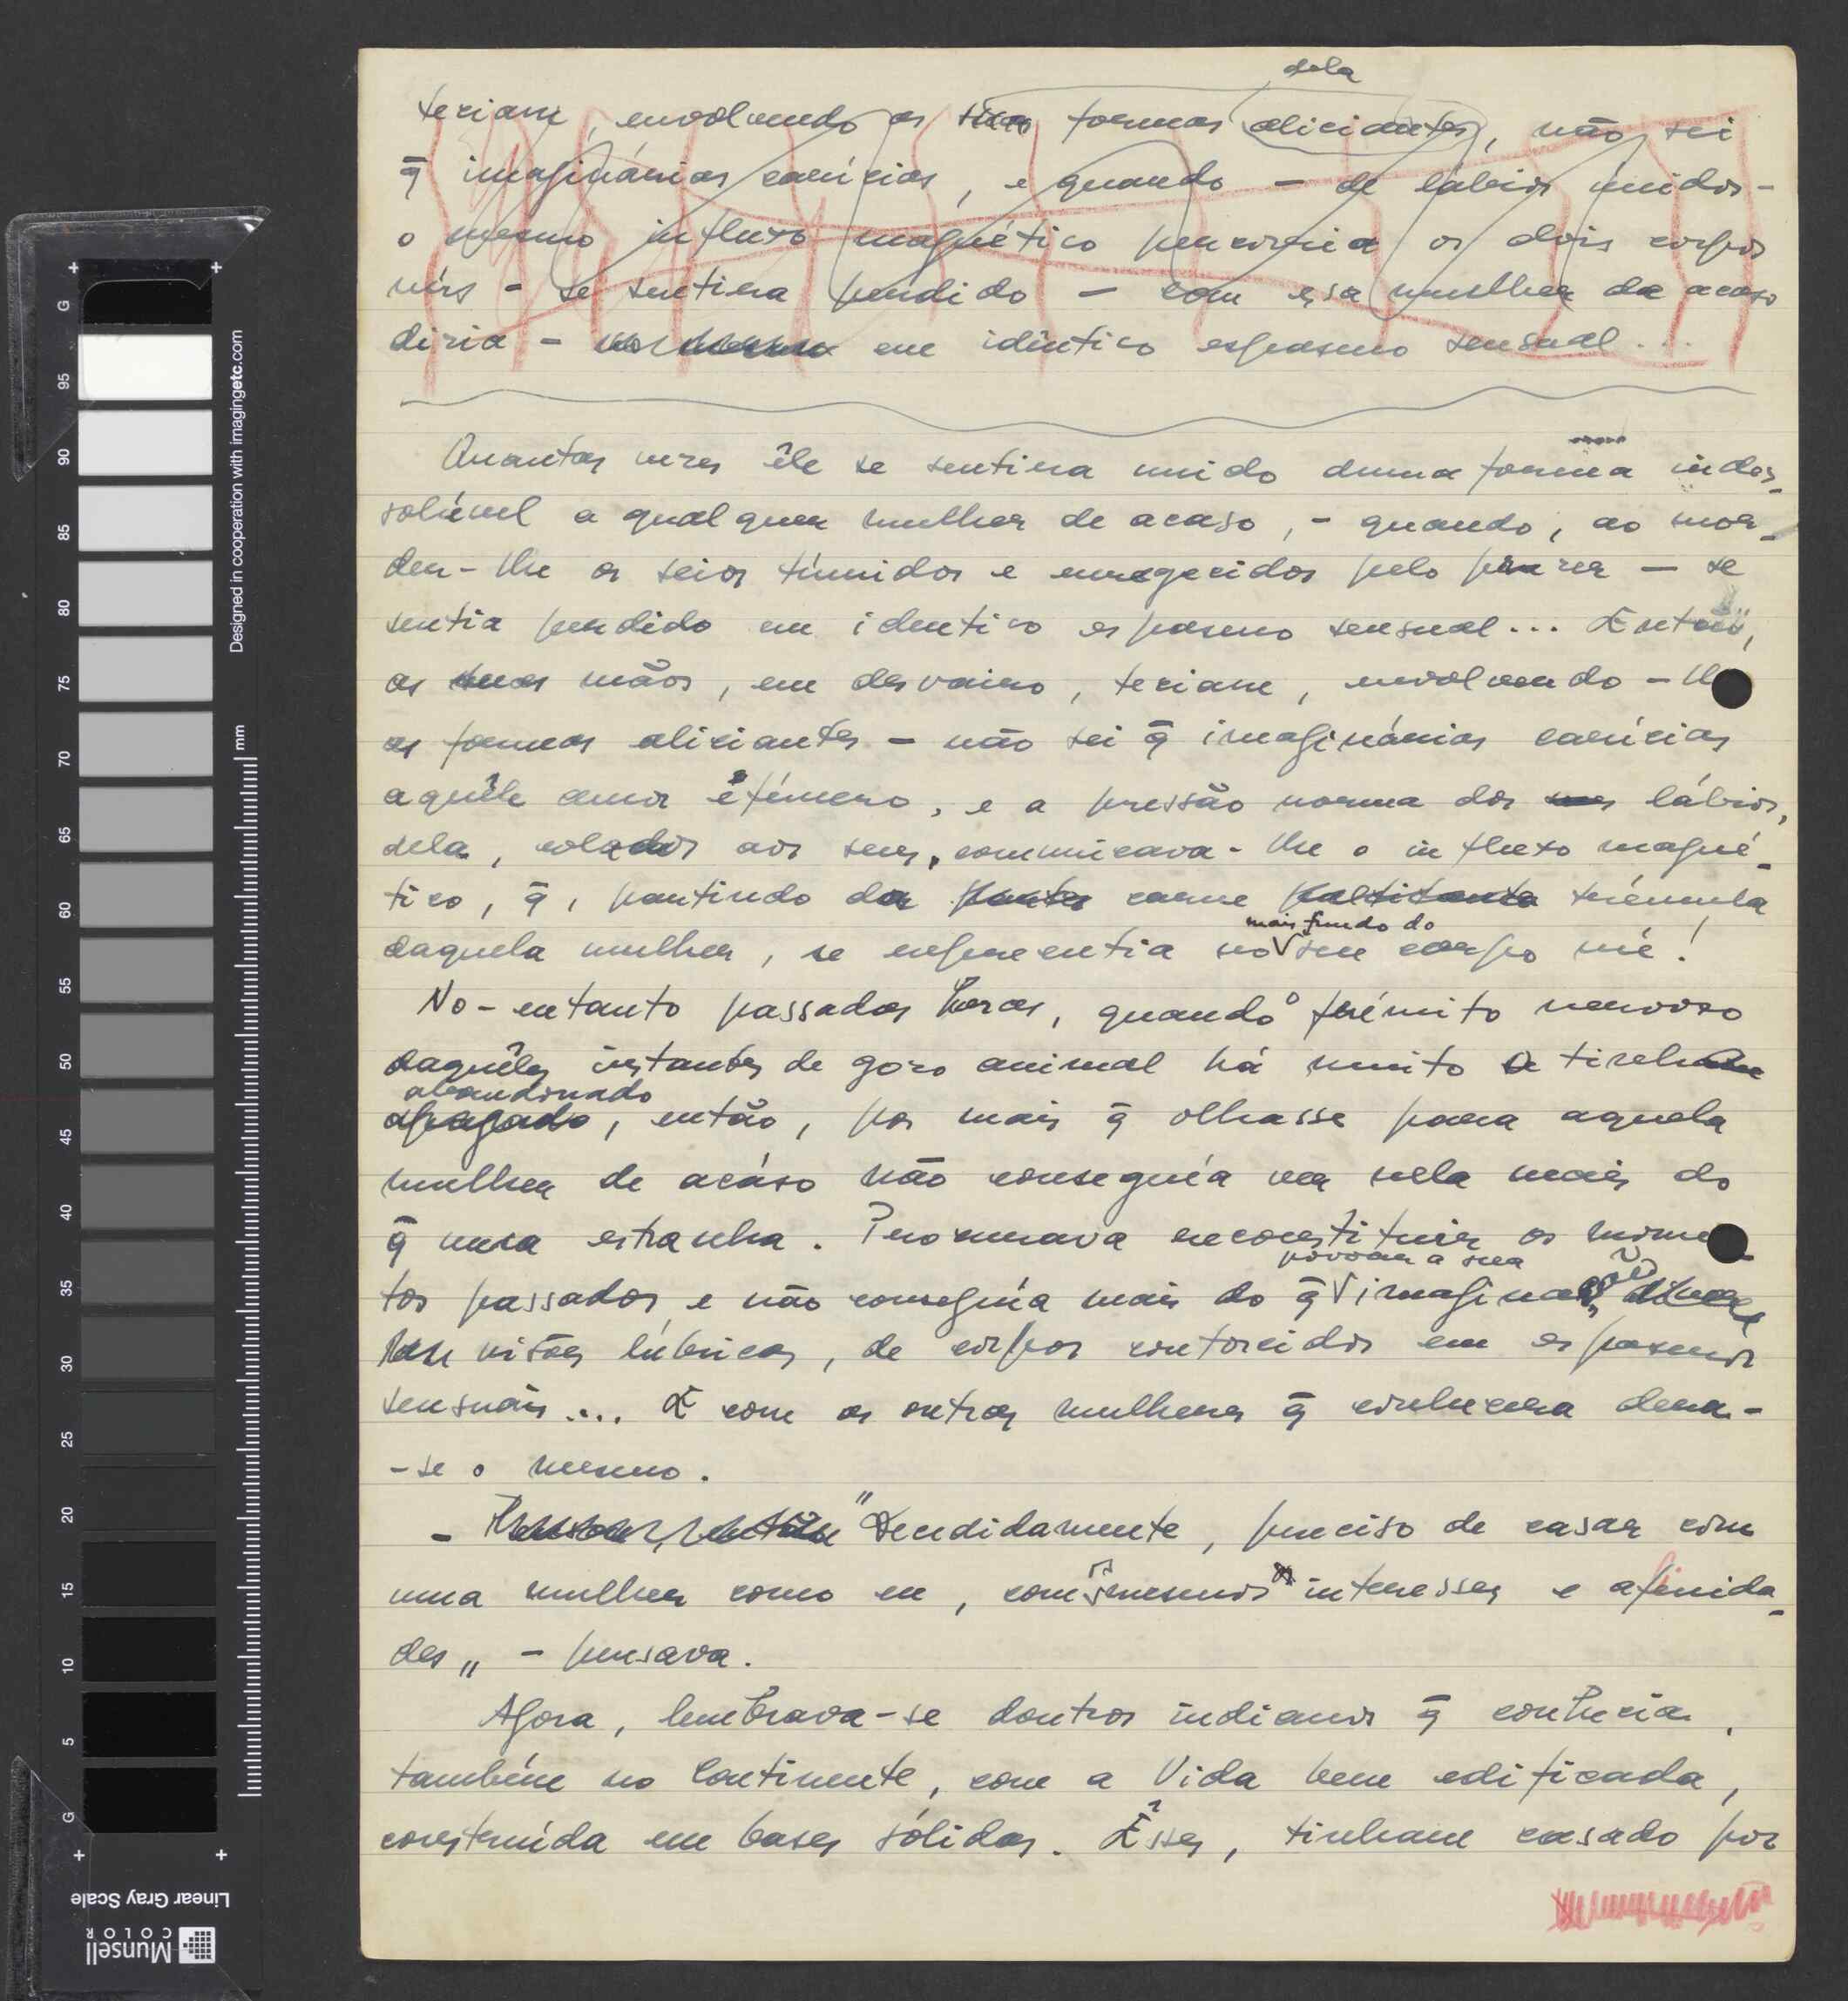 dela
teciam, envolvendo as suas formas aliciantes, não sei
q̄ imaginárias carícias, e quando - de lábios unidos -
o mesmo influxo magnético percorria os dois corpos
nús - se sentira perdido - com essa mulher de acaso
diria - no mesmo em idêntico espasmo sensual...
Quantas vezes êle se sentira unido duma forma indes-
solúvel a qualquer mulher de acaso, - quando, ao mor-
der-lhe os seios túmidos e enregecidos pelo prazer - se
sentia perdido em identico espasmo sensual... Então,
as suas mãos, em desvairo, teciam, envolvendo-lh
as formas aliciantes - não sei q̄ imaginárias carícias
aquêle amor efémero, e a pressão morna dos seus lábios,
dela, colados aos seus, communicava-lhe o influxo magné-
tico, q̄, partindo da carne palpitante trémula
mais fundo do
daquela mulher, se repercutia no seu corpo nú!
No-entanto passadas horas, quando o frémito nervoso
daquêles instantes de gozo animal há muito o tinham
abandonado
apagado, então, por mais q̄ olhasse para aquela
mulher de acáso não conseguía ver nela mais do
q̄ uma estranha. Procurava reconstituir os mome
povoar a sua
tos passados, e não conseguía mais do q̄ imaginação
visões lúbricas, de corpos contorcidos em espasmos
sensuais.... E com as outras mulheres q̄ conhecera dera-
-se o mesmo.
- "Decididamente, preciso de casar com
uma mulher como eu, com os mesmos interesses e afinida-
des" - pensava.
Agora, lembrava-se doutros indianos q̄ conhecia,
também no Continente, com a Vida bem edificada,
construída em bases sólidas. Êsses, tinham casado por
+ +
G
95
90
85
80
75
70
65
60
55
50
45
40
35
30
25
20
15
10
5
G
+ +
Designed in cooperation with imagingetc.com
mm
Linear Gray Scale
Munsell
COLOR